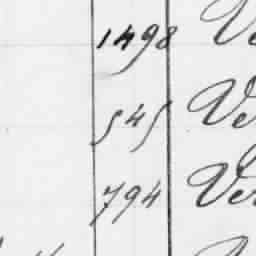 1498 Ve
545 Ve
794 Ver